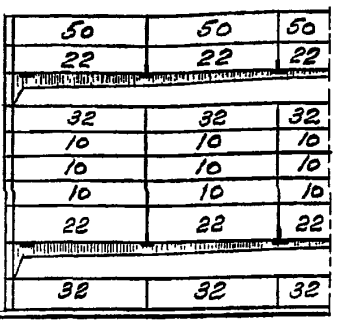 50 50 50
22 22 22
32 32 32
10 10 10
10 10 10
10 10 10
22 22 22
32 32 32